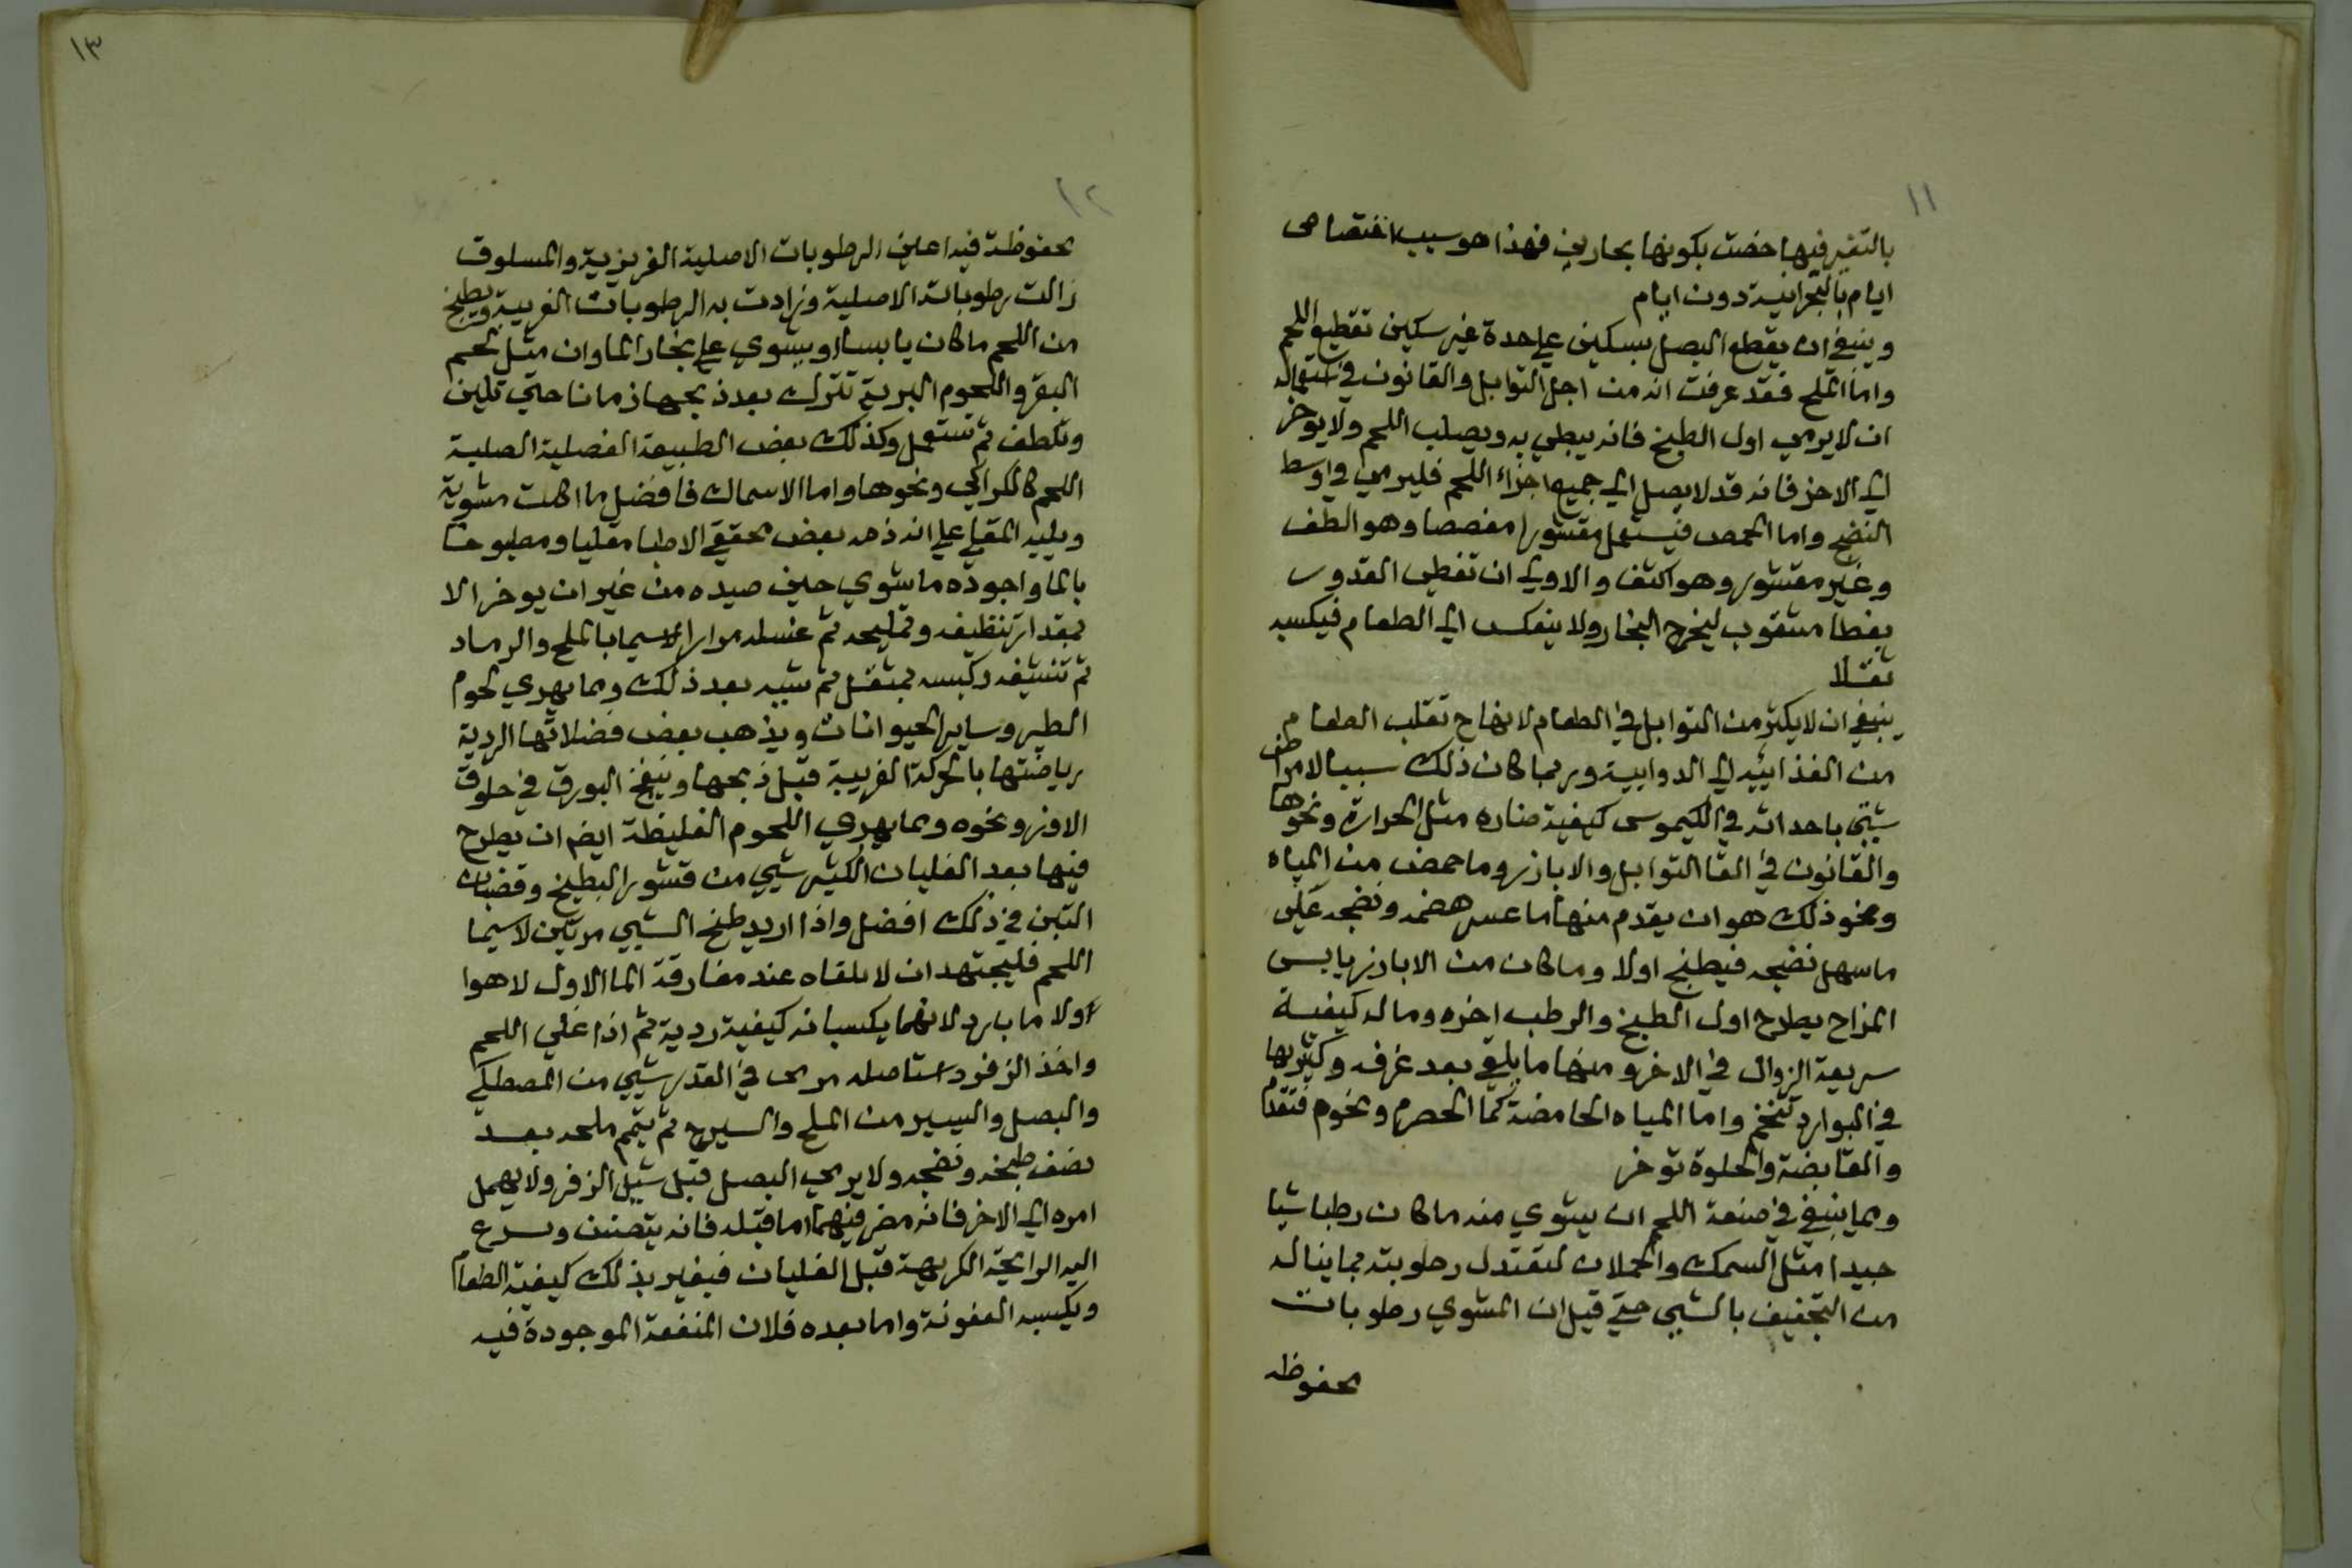 ١١
بالتغير فيها خصت بكونها بحارين فهذا هو سبب اختصاص
ايام بالبحرانية دون ايام
وينبغي ان يقطع البصل بسكين علي حدة غير سكين تقطيع اللحم
واما الملح فقد عرفت انه من اجل التوابل والقانون في استعماله
ان لا يرمي اول الطبخ فانه يبطي به ويصلب اللحم ولا يوخر
الي الاخر فانه قد لا يصل الي جميع اجزاء اللحم فليرمي في اوسط
النضج واما الحمص فيستعمل مقشورا مفصصا وهو الطف
وغير مقشور وهو اكثف والاولي ان تغطي القدور
بغطا مثقوب ليخرج البخار ولا ينعكس الي الطعام فيكسبه
ثقلا
ينبغي ان لا يكثر من التوابل في الطعام لانها ح تقلب الطعام
من الغذاييه الي الدواييه وربما كان ذلك سببا لامراض
شتي باحداثه في الكيموس كيفية ضاره مثل الحرارة ونحوها
والقانون في القا التوابل والابازير وما حمض من المياه
ونحو ذلك هو ان يقدم منها ما عسر هضمه ونضجه علي
ما سهل نضجه فيطبخ اولا وما كان من الابازير يابس
المزاج يطرح اول الطبخ والرطب اخره وما له كيفية
سريعة الزوال في الاخر ومنها ما يلقي بعد غرفه وكثيرها
في البوارد واما المياه الحامضة كما الحصرم ونحوه فتقدم
والقابضة والحلوة توخر
ومما ينبغي في صنعة اللحم ان يشوي منه ما كان رطبا شيا
جيدا مثل السمك والحملان لتعتدل رطوبته بما يناله
من التجفيف بالشي حتي قيل ان المشوي رطوبات
محفوظه
١٢
محفوظة فيه اعني الرطوبات الاصلية الغريزية والمسلوق
زالت رطوباته الاصلية وزادت به الرطوبات الغريبة ويطبخ
من اللحم ما كان يابسا او يشوي علي بخار الما وان مثل لحم
البقر واللحوم البرية تترك بعد ذبحها زمانا حتي تلين
وتلطف ثم تستعمل وكذلك بعض الطبيعة العضلية الصلبة
اللحم كالكراكي ونحوها واما الاسماك فافضل ما اكلت مشوية
ويليه المقلي علي انه ذمه بعض محققي الاطبا مقليا ومطبوخا
بالما واجوده ما شوي حين صيده من غير ان يوخر الا
بمقدار تنظيفه وتمليحه ثم غسله مرارا لاسيما بالملح والرماد
ثم تنشيفه وكبسه بمثقل ثم شيه بعد ذلك ومما يهري لحوم
الطير وساير الحيوانات ويذهب بعض فضلاتها الردية
رياضتها بالحركة الغريبة قبل ذبحها وينفخ البورق في حلوق
الاوز ونحوه ومما يهري اللحوم الغليظة ايضا ان يطرح
فيها بعد الغليان الكثير شيي من قشور البطيخ وقضبان
التين في ذلك افضل واذا اريد طبخ الشيي مرتين لاسيما
اللحم فليجتهد ان لا يلقاه عند مفارقة الما الاول لا هوا
ولا ما بارد لانهما يكسبانه كيفية ردية ثم اذا غلي اللحم
واخذ الزفر واستاصله مر في القدر شيي من المصطكي
والبصل واليسير من الملح والسيرج ثم يتمم ملحه بعد
نصف طبخه ونضجه ولا يرمي البصل قبل شيل الزفر ولا يهمل
امره الي الاخر فانه مضر فيهما اما قبله فانه يتصنن ويسرع
اليه الرايحة الكريهة قبل الغليان فيغير بذلك كيفية الطعام
ويكسبه العفونة واما بعده فلان المنفعة الموجودة فيه
١٣